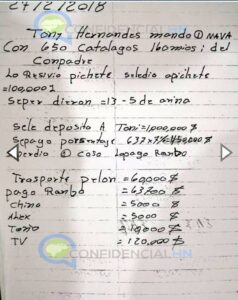 27/12/2018
Tony Hernandes mando ① NAVA
Con 650 Catalagos 160 mios i del
Conpadre
Lo Resivio pichete seledio apichete
=100,000$
Seper dieron = 13 - 5 de arina
Sele deposito A Toni = 1,000,000 $
Sepago porsentaje 637 x
Perdio ① caso Lopago Ranbo
Trasporte pelon = 60,000 $
pago Ranbo = 63700 $
china = 5000 $
Alex = 5000 $
= 10,000 $
TV = 120,000 $
CONFIDENCIALHN